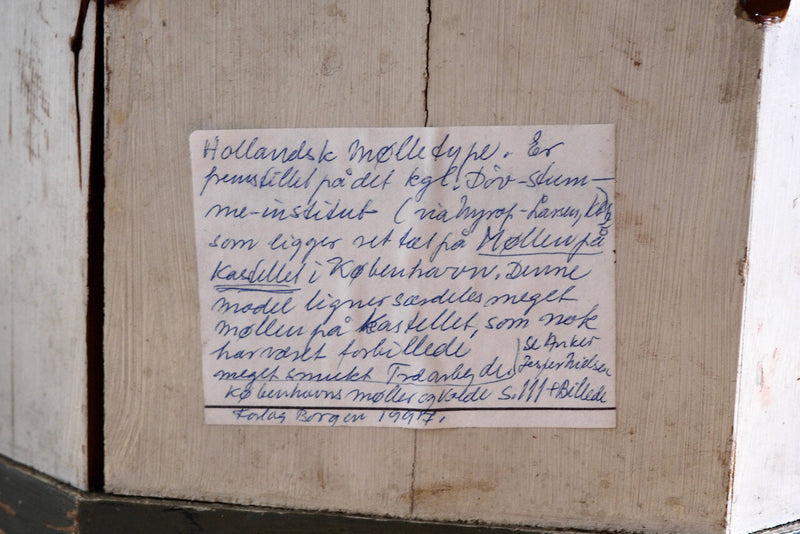 Hollandsk Mølletype. Er
fremstillet på det kgl. Döv-stum-
me-institut (via Nyrop-Larsen, Kbh)
som ligger ret tæt på Møllen på
Kastellet i København. Denne
model ligner særdeles meget
møllen på Kastellet, som nok
har været forbillede
meget smukt Træarbejde
Se Anker
Jesper Nielsen
Københavns møller og Volde S. 111 + Billede
Forlag Borgen 1997.